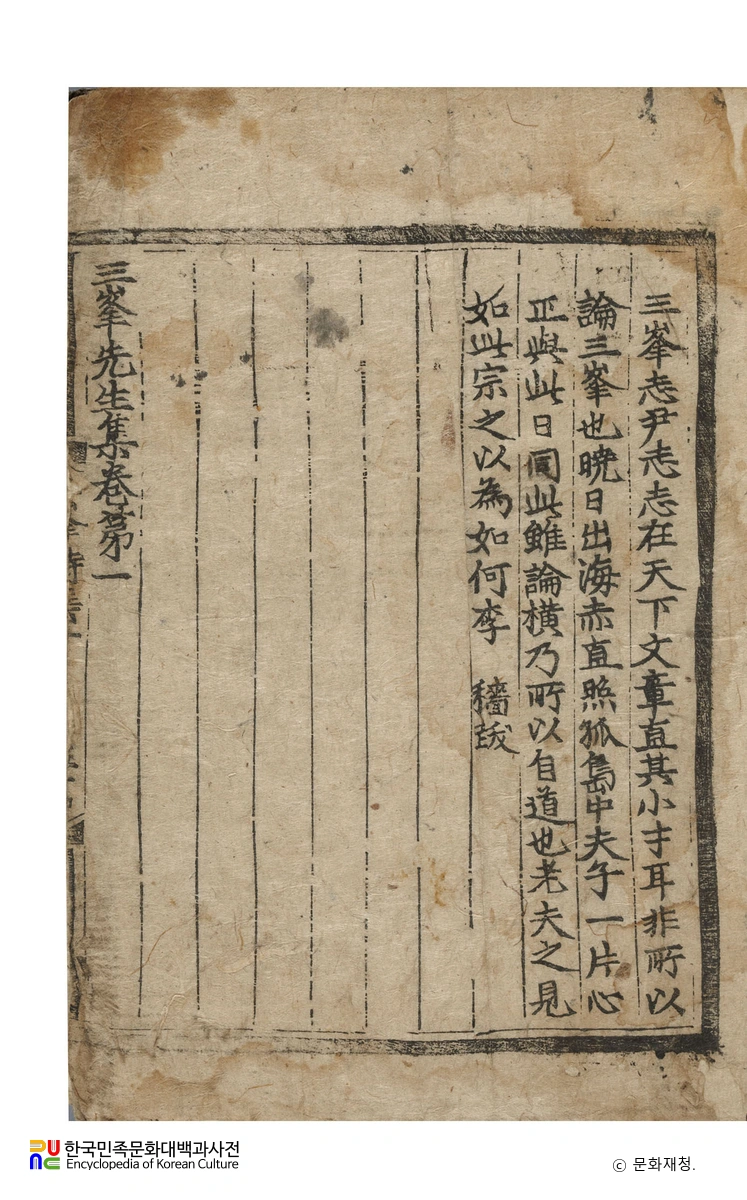 三峯志尹志志在天下文章直其小才耳非所以
論三峯也曉日出海赤直照孤島中夫子一片心
正與此日同此雖論橫乃所以自道也老夫之見
如此宗之以為如何李 穡跋
三峯先生集卷第一
한국민족문화대백과사전
Encyclopedia of Korean Culture
ⓒ 문화재청.